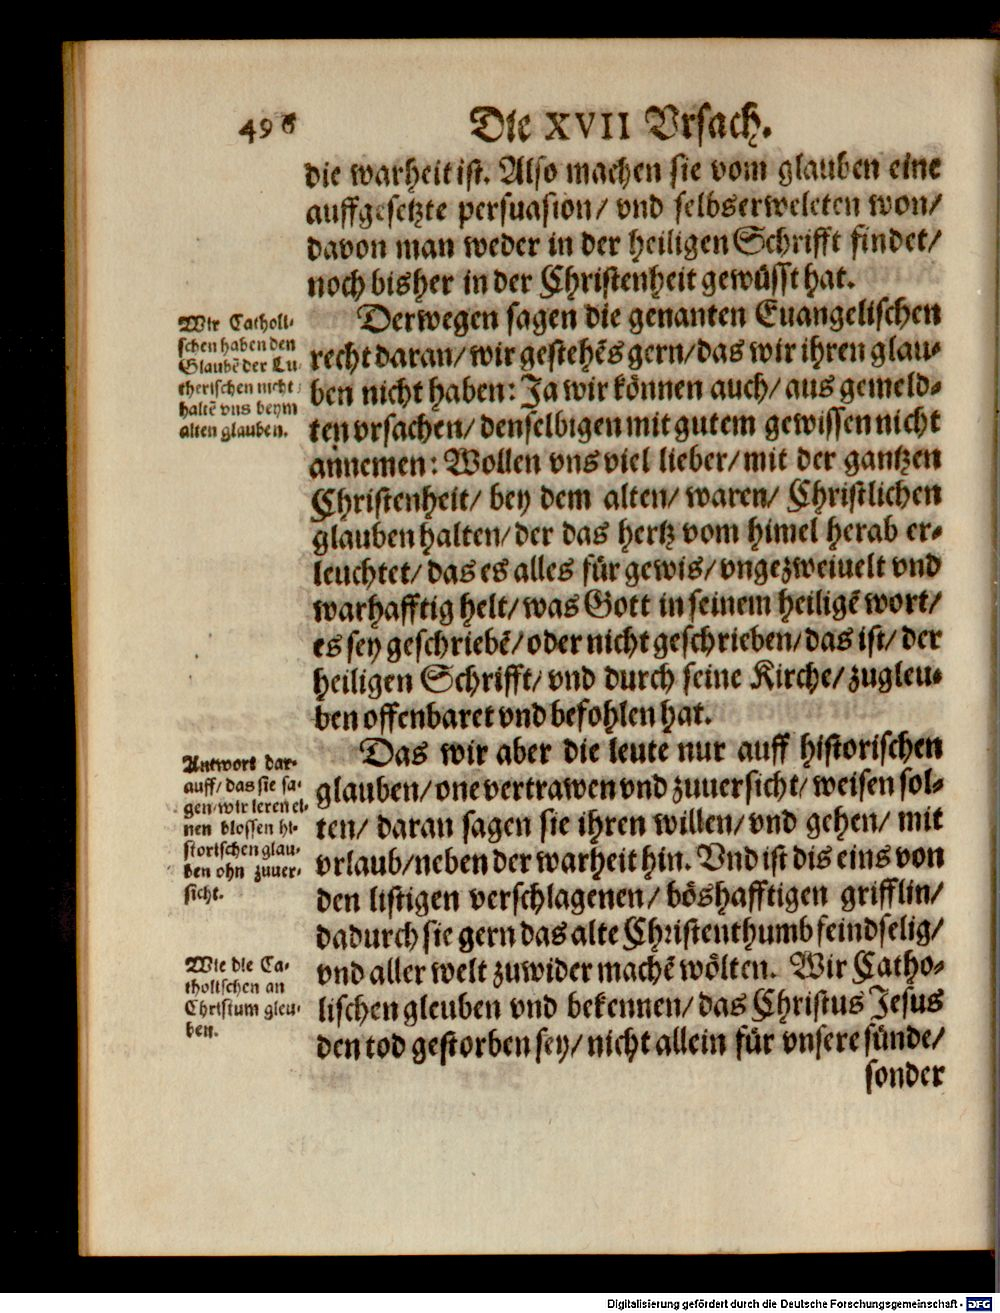 496
Die XVII Vrsach.
die warheit ist. Also machen sie vom glauben eine
auffgesetzte persuasion/ vnd selbserweleten won/
davon man weder in der heiligen Schrifft findet/
noch bisher in der Christenheit gewüsst hat.
Wir Catholi-
schen haben den
Glaubē der Lu-
therischen nicht:
haltē vns beym
alten glauben.
Derwegen sagen die genanten Euangelischen
recht daran/ wir gestehēs gern/ das wir ihren glau-
ben nicht haben: Ja wir können auch/ aus gemeld-
ten vrsachen/ denselbigen mit gutem gewissen nicht
annemen: Wollen vns viel lieber/ mit der gantzen
Christenheit/ bey dem alten/ waren/ Christlichen
glauben halten/ der das hertz vom himel herab er-
leuchtet/ das es alles für gewis/ vngezweiuelt vnd
warhafftig helt/ was Gott in seinem heiligē wort/
es sey geschriebē/ oder nicht geschrieben/ das ist/ der
heiligen Schrifft/ vnd durch seine Kirche/ zugleu-
ben offenbaret vnd befohlen hat.
Antwort dar-
auff/ das sie sa-
gen/ wir leren ei-
nen blossen hi-
storischen glau-
ben ohn zuuer-
sicht.
Das wir aber die leute nur auff historischen
glauben/ one vertrawen vnd zuuersicht/ weisen sol-
ten/ daran sagen sie ihren willen/ vnd gehen/ mit
vrlaub/ neben der warheit hin. Vnd ist dis eins von
den listigen verschlagenen/ böshafftigen grifflin/
dadurch sie gern das alte Christenthumb feindselig/
Wie die Ca-
tholischen an
Christum gleu-
ben.
vnd aller welt zuwider machē wölten. Wir Catho-
lischen gleuben vnd bekennen/ das Christus Jesus
den tod gestorben sey/ nicht allein für vnsere sünde/
sonder
Digitalisierung gefördert durch die Deutsche Forschungsgemeinschaft - DFG